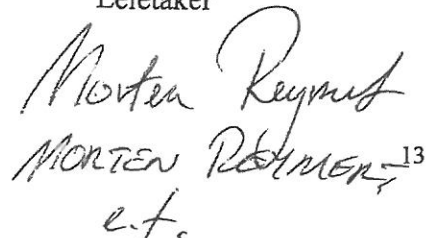 Leietaker
Morten Reymert
MORTEN REYMERT 13
e.f.